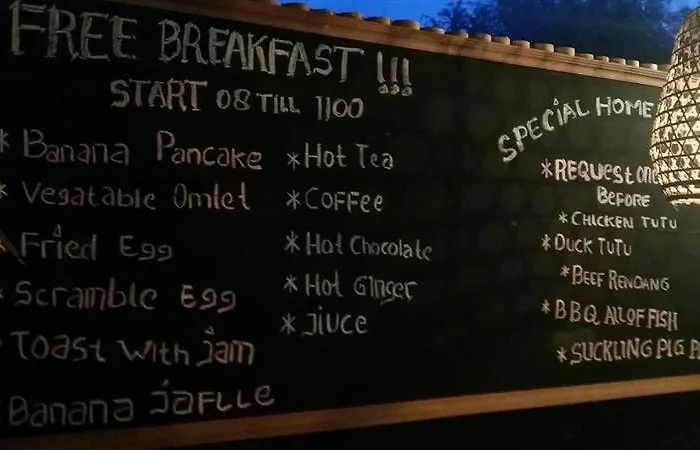 FREE BREAKFAST !!!
START 08 TILL 1100
* Banana Pancake
* Vegatable Omlet
* Fried Egg
* Scramble Egg
* Toast With jam
* Banana jaFLLe
* Hot Tea
* COFFEE
* Hot Chocolate
* Hot Ginger
* JIUCE
SPECIAL HOME
* REQUEST
BEFORE
* CHICKEN TUTU
* DUCK TUTU
* BEEF RENDANG
* BBQ ALLOF FISH
* SUCKLING PIG